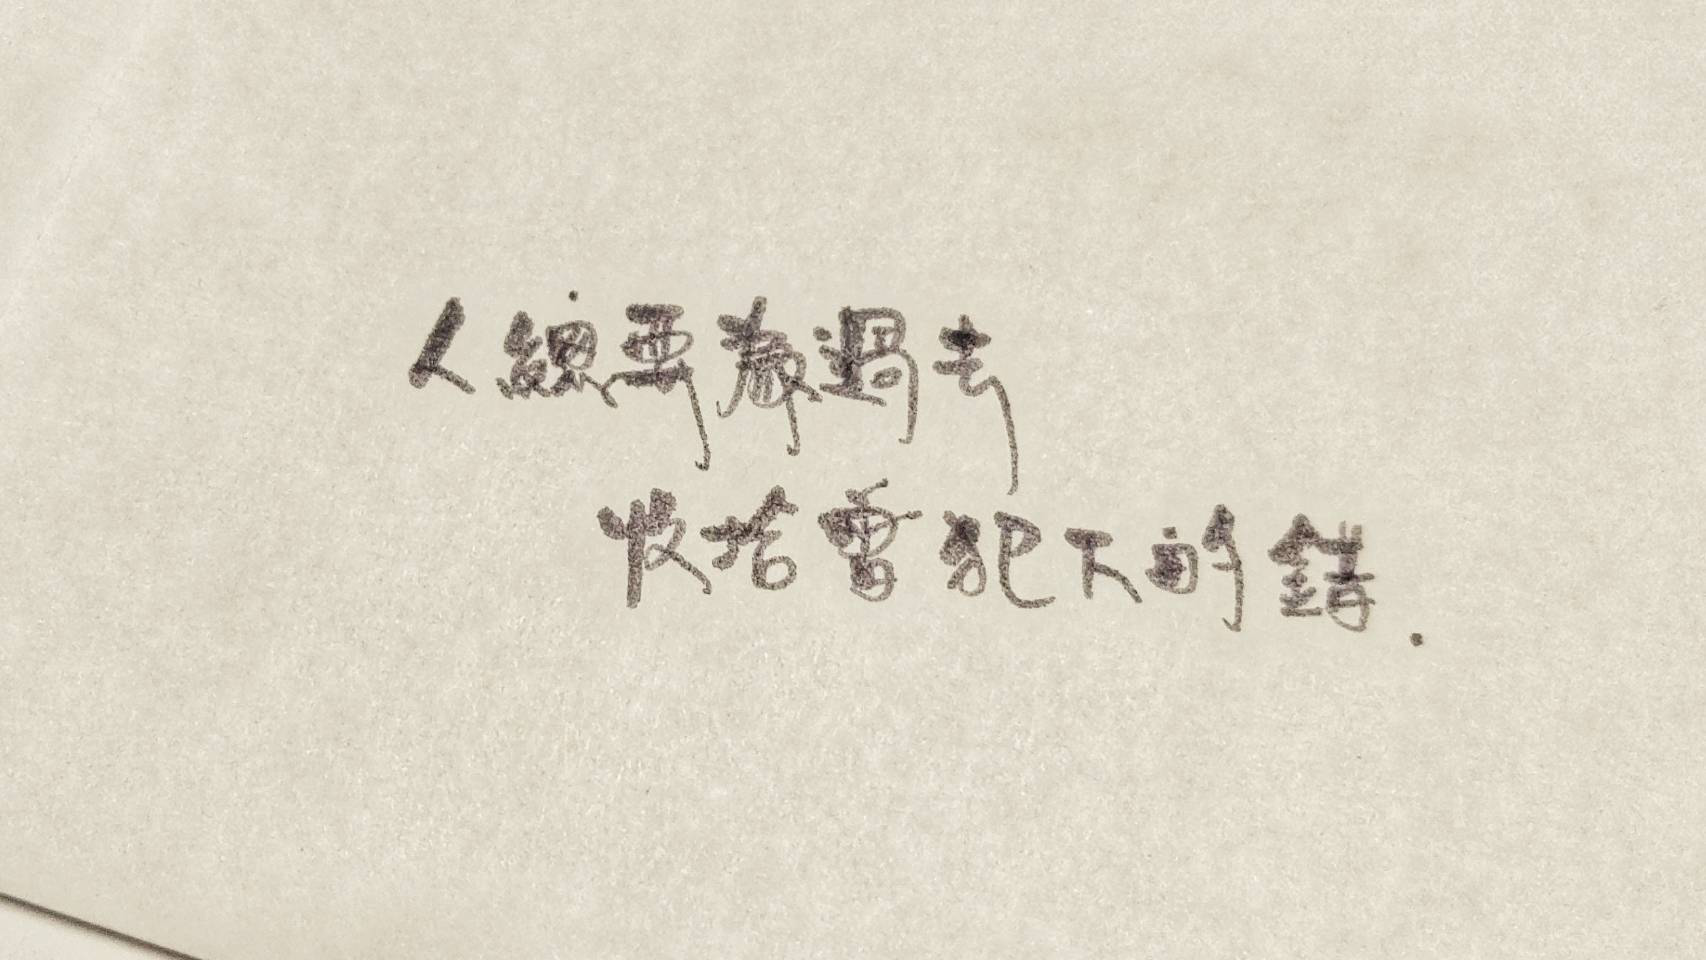 人總要為過去
收拾曾犯下的錯.